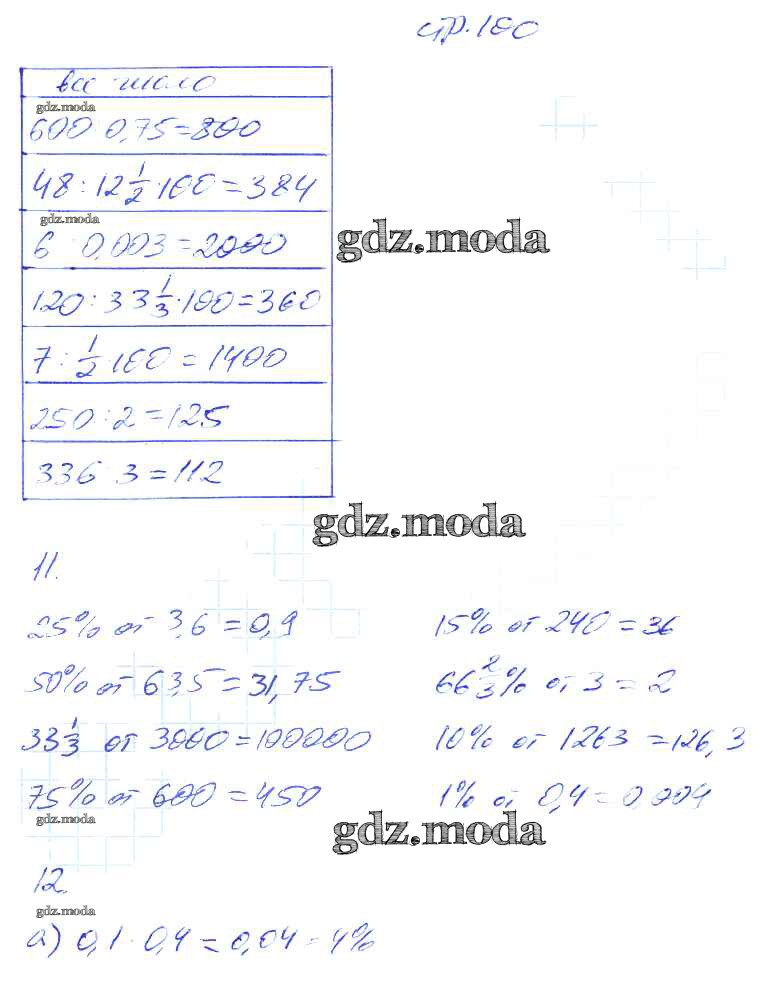 стр.100
все число
gdz.moda
600 : 0,75 = 800
48 : 12 1/2 · 100 = 384
gdz.moda
6 : 0,003 = 2000
gdz.moda
120 : 33 1/3 · 100 = 360
7 : 1/2 · 100 = 1400
250 : 2 = 125
336 : 3 = 112
gdz.moda
11.
25% от 3,6 = 0,9
15% от 240 = 36
50% от 63,5 = 31,75
66 2/3% от 3 = 2
33 1/3 от 3000 = 100000
10% от 1263 = 126,3
75% от 600 = 450
1% от 0,4 = 0,004
gdz.moda
gdz.moda
12.
gdz.moda
а) 0,1 · 0,4 = 0,04 = 4%